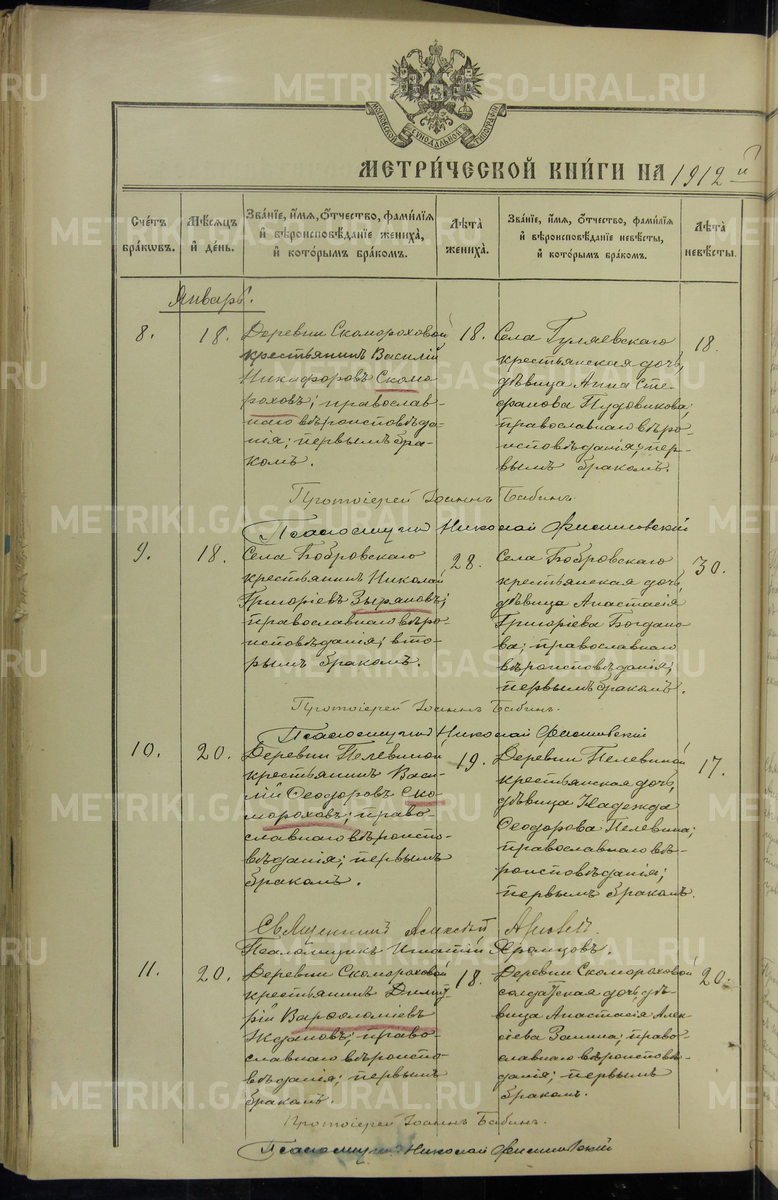 МОСКОВСКОЙ СѴНОДАЛЬНОЙ ТИПОГРАФІИ
МЕТРИ́ЧЕСКОЙ КНИ́ГИ НА 1912 й
Сче́тъ бра́кѡвъ.
Мѣ́сяцъ й де́нь.
Зва́нїе, и́мя, ѻ́тчество, фами́лїя й вѣроисповѣ́данїе жениха̀, й кото́рымъ бра́комъ.
Лѣ́та жениха̀.
Зва́нїе, и́мя, ѻ́тчество, фами́лїя й вѣроисповѣ́данїе невѣ́сты, й кото́рымъ бра́комъ.
Лѣ́та невѣ́сты.
Январь.
8.
18.
Деревни Скомороховой
крестьянинъ Василій
Никифоровъ Скомо
роховъ; православ-
наго вѣроисповѣда-
нія; первымъ бра-
комъ.
18.
Села Гуляевскаго
крестьянская дочь,
дѣвица Анна Сте-
фанова Пудовикова;
православнаго вѣро-
исповѣданія; пер-
вымъ бракомъ.
18.
Протоіерей Іоаннъ Бабинъ.
Псаломщикъ Николай
9.
18.
Села Бобровскаго
крестьянинъ Николай
Григоріевъ Зыряновъ;
православнаго вѣро-
исповѣданія; вто-
рымъ бракомъ.
28.
Села Бобровскаго
крестьянская дочь,
дѣвица Анастасія
Григоріева Богдано-
ва; православнаго
вѣроисповѣданія;
первымъ бракомъ.
30.
Протоіерей Іоаннъ Бабинъ.
Псаломщикъ Николай
10.
20.
Деревни Пелевиной
крестьянинъ Васи-
лій Ѳеодоровъ Ско
мороховъ; право-
славнаго вѣроиспо-
вѣданія; первымъ
бракомъ.
19.
Деревни Пелевиной
крестьянская дочь,
дѣвица Надежда
Ѳеодорова Пелевина;
православнаго вѣ-
роисповѣданія;
первымъ бракомъ.
17.
Священникъ Алексѣй
Псаломщикъ Игнатій
11.
20.
Деревни Скомороховой
крестьянинъ Димит-
рій Варѳоломіевъ
Ждановъ; право-
славнаго вѣроиспо-
вѣданія; первымъ
бракомъ.
18.
Деревни Скомороховой
солдатская дочь, дѣ-
вица Анастасія Алек-
сіева Заинина; право-
славнаго вѣроисповѣ-
данія; первымъ
бракомъ.
20.
Протоіерей Іоаннъ Бабинъ.
Псаломщикъ Николай
METRIKI.GASO-URAL.RU